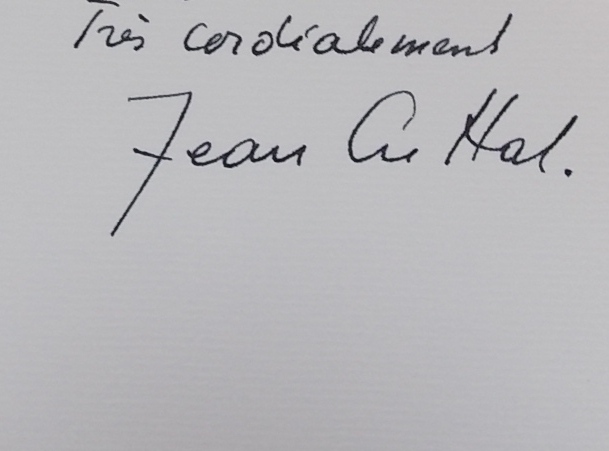 Très cordialement
Jean Cuttat.